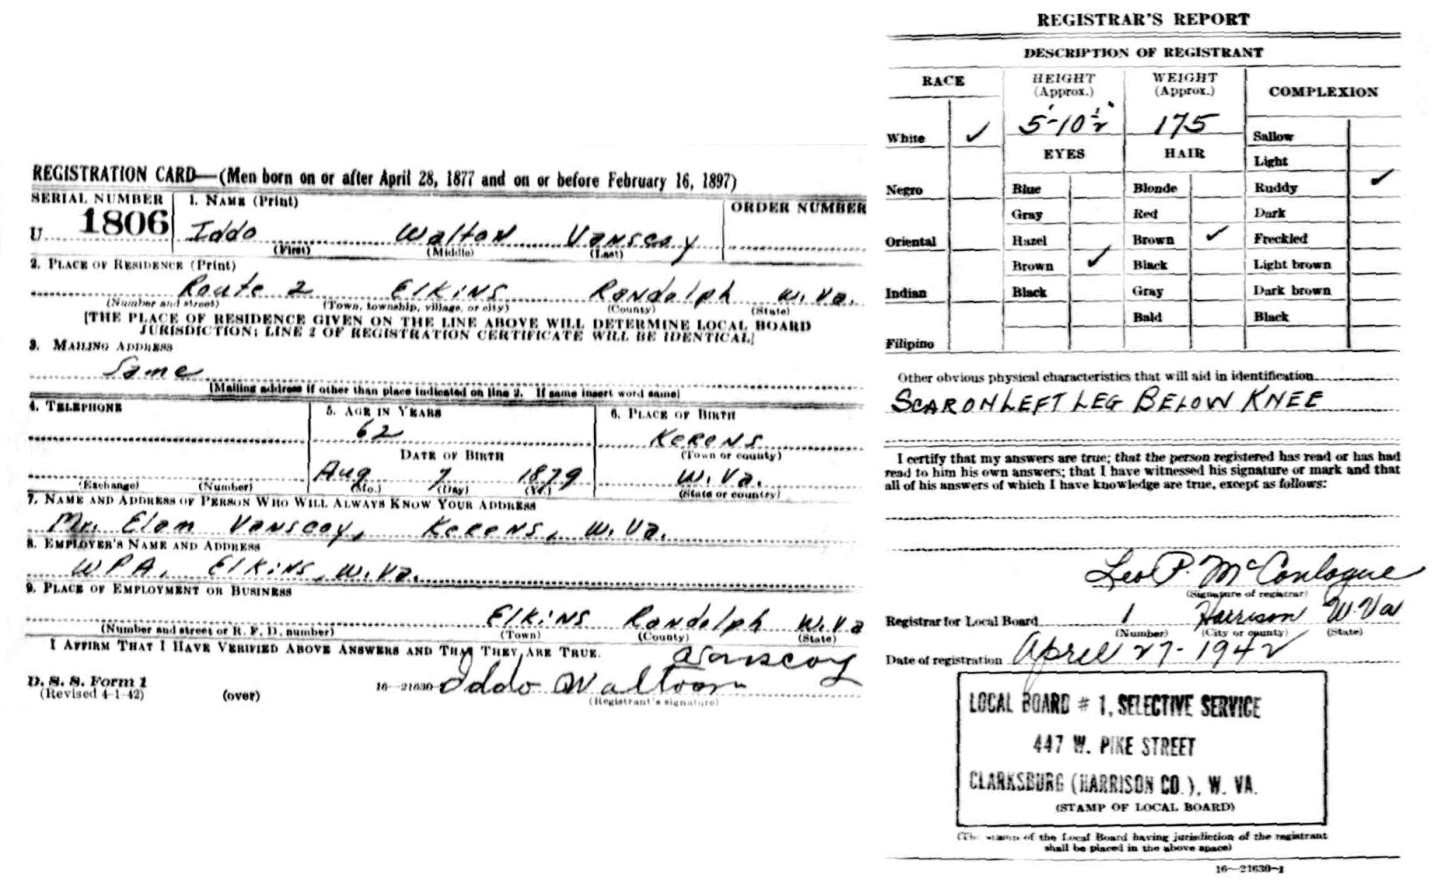 REGISTRATION CARD—(Men born on or after April 28, 1877 and on or before February 16, 1897)
SERIAL NUMBER 1. NAME (Print) ORDER NUMBER
U 1806 Iddo Walton Vanscoy
(First) (Middle) (Last)
2. PLACE OF RESIDENCE (Print)
Route 2 Elkins Randolph W.Va.
(Number and street) (Town, township, village, or city) (County) (State)
[THE PLACE OF RESIDENCE GIVEN ON THE LINE ABOVE WILL DETERMINE LOCAL BOARD
JURISDICTION; LINE 2 OF REGISTRATION CERTIFICATE WILL BE IDENTICAL]
3. MAILING ADDRESS
Same
[Mailing address if other than place indicated on line 2. If same insert word same]
4. TELEPHONE 5. AGE IN YEARS 6. PLACE OF BIRTH
62 Kerens
DATE OF BIRTH (Town or county)
Aug 7 1879 W.Va.
(Exchange) (Number) (Mo.) (Day) (Yr.) (State or country)
7. NAME AND ADDRESS OF PERSON WHO WILL ALWAYS KNOW YOUR ADDRESS
Mr. Elam Vanscoy, Kerens, W.Va.
8. EMPLOYER'S NAME AND ADDRESS
WPA, Elkins, W.Va.
9. PLACE OF EMPLOYMENT OR BUSINESS
Elkins Randolph W.Va
(Number and street or R. F. D. number) (Town) (County) (State)
I AFFIRM THAT I HAVE VERIFIED ABOVE ANSWERS AND THAT THEY ARE TRUE.
D. S. S. Form 1
(Revised 4-1-42) (over) 16—21630 Iddo Waltoon Vanscoy
(Registrant's signature)
REGISTRAR'S REPORT
DESCRIPTION OF REGISTRANT
RACE HEIGHT (Approx.) WEIGHT (Approx.) COMPLEXION
White ✓ 5'-10½" 175 Sallow
EYES HAIR Light
Negro Blue Blonde Ruddy ✓
Gray Red Dark
Oriental Hazel Brown ✓ Freckled
Brown ✓ Black Light brown
Indian Black Gray Dark brown
Bald Black
Filipino
Other obvious physical characteristics that will aid in identification
SCAR ON LEFT LEG BELOW KNEE
I certify that my answers are true; that the person registered has read or has had
read to him his own answers; that I have witnessed his signature or mark and that
all of his answers of which I have knowledge are true, except as follows:
Leo P McConlogue
(Signature of registrar)
Registrar for Local Board 1 Harrison W.Va
(Number) (City or county) (State)
Date of registration April 27-1942
LOCAL BOARD # 1, SELECTIVE SERVICE
447 W. PIKE STREET
CLARKSBURG (HARRISON CO.), W. VA.
(STAMP OF LOCAL BOARD)
(The stamp of the Local Board having jurisdiction of the registrant
shall be placed in the above space)
16—21630-1